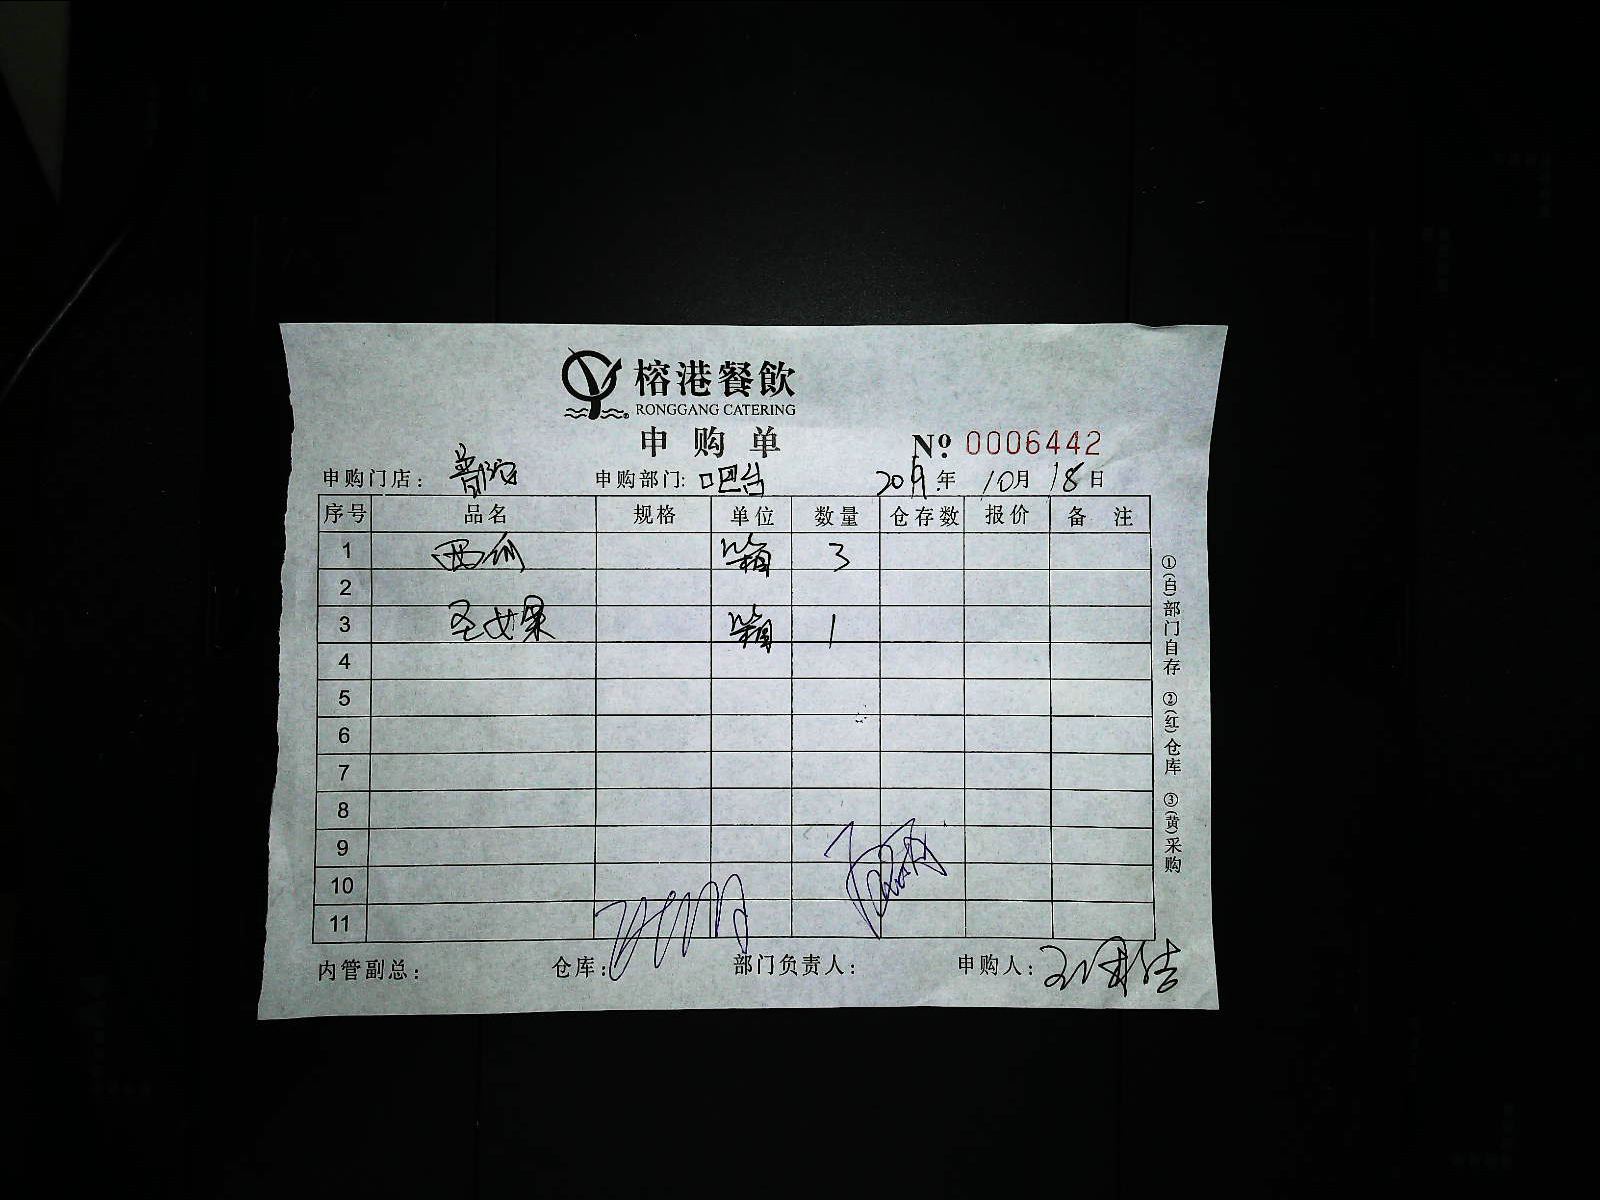 榕港餐飲
RONGGANG CATERING
申购单 Nº 0006442
申购门店: 普陀 申购部门: 吧台 2019年10月18日
序号 品名 规格 单位 数量 仓存数 报价 备注
1 西瓜 箱 3
2
3 圣女果 箱 1
4
5
6
7
8
9
10
11
内管副总: 仓库: 部门负责人: 申购人:
①(白)部门自存 ②(红)仓库 ③(黄)采购